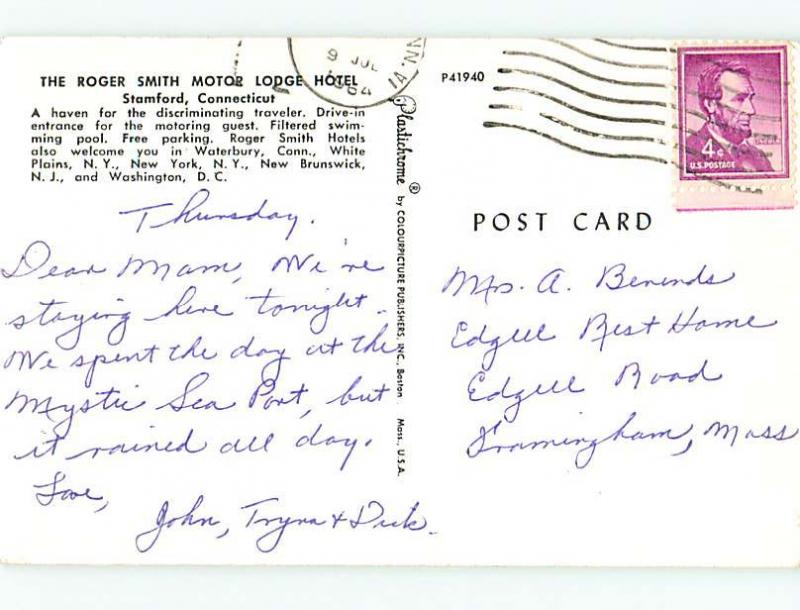 THE ROGER SMITH MOTOR LODGE HOTEL
Stamford, Connecticut
A haven for the discriminating traveler. Drive-in
entrance for the motoring guest. Filtered swim-
ming pool. Free parking. Roger Smith Hotels
also welcome you in Waterbury, Conn., White
Plains, N. Y., New York, N. Y., New Brunswick,
N. J., and Washington, D. C.
Thursday.
Dear Mam, We're
staying here tonight.
We spent the day at the
Mystic Sea Port, but
it rained all day.
Love,
John, & Dick.
9 JUL
Plastichrome ® by COLOURPICTURE PUBLISHERS, INC., Boston Mass., U.S.A.
P41940
4¢
U.S. POSTAGE
POST CARD
Mrs. A. Berends
Edgell Rest Home
Edgell Road
Framingham, Mass